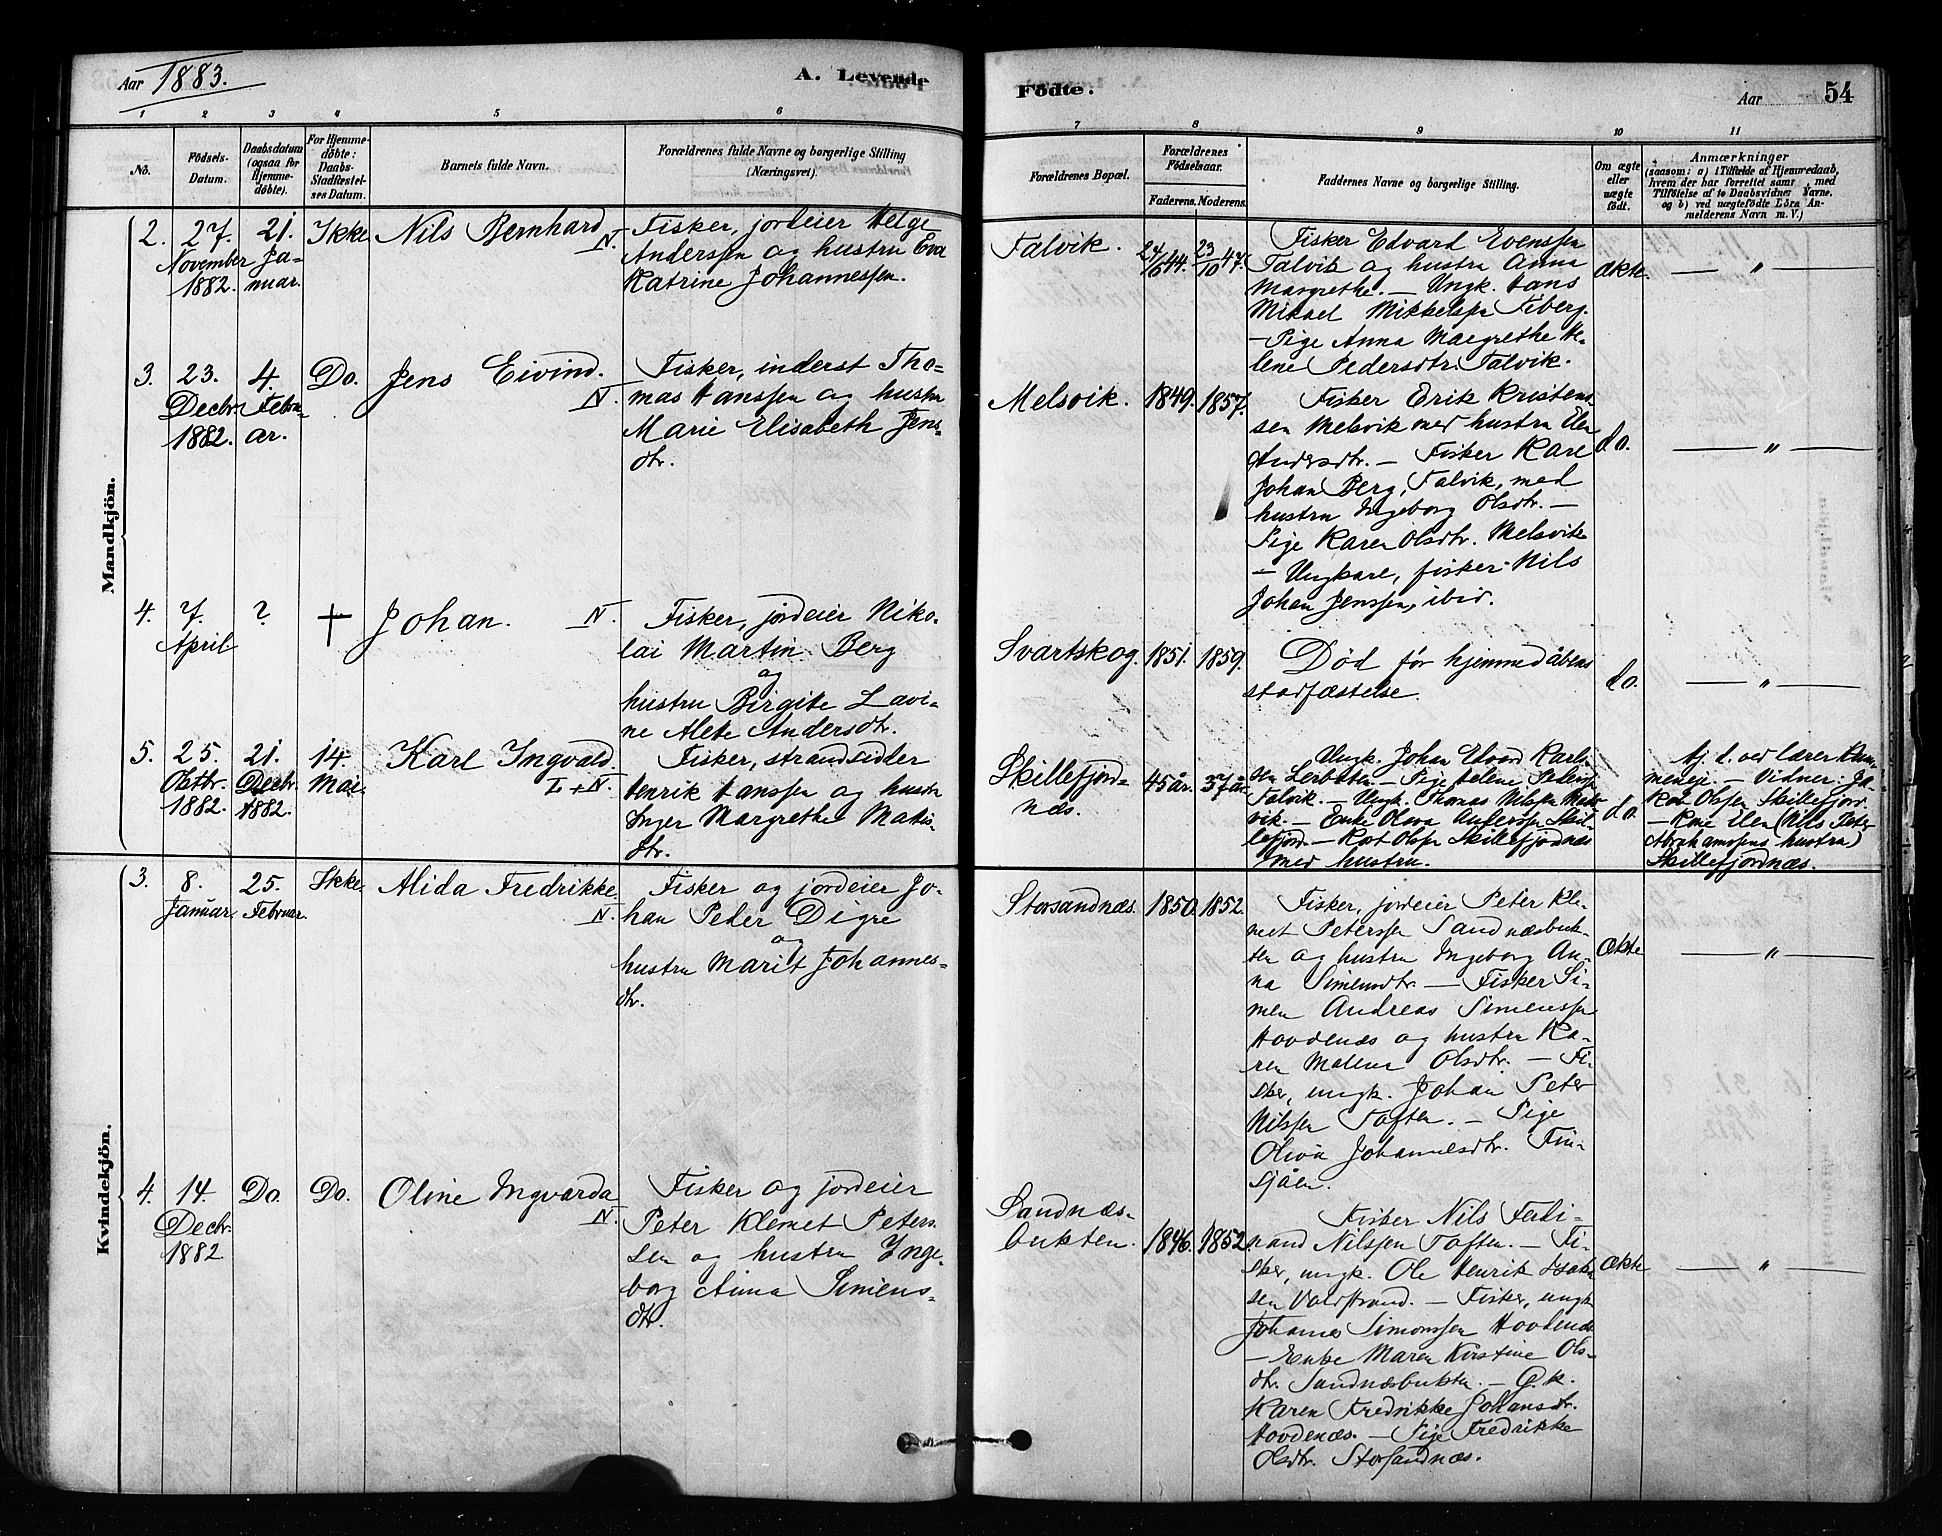 Aar 1883.
A. Levende
Födte.
Aar
54
1 2 3 4 5 6 7 8 9 10 11
No.
Födsels-
Datum.
Daabsdatum
(ogsaa for
Hjemme-
döbte).
For Hjemme-
döbte:
Daabs-
Stadfæstel-
ses Datum.
Barnets fulde Navn.
Forældrenes fulde Navne og borgerlige Stilling
(Næringsvei).
Forældrenes Bopæl.
Forældrenes
Födselsaar.
Faderens. Moderens.
Faddernes Navne og borgerlige Stilling.
Om ægte
eller
uægte
födt.
Anmærkninger
(saasom: a) i Tilfælde af Hjemmedaab,
hvem der har forrettet samt, med
Tilföielse af to Daabsvidner Navne,
og b) ved uægtefödte Börn An-
melderens Navn m. V.)
Mandkjön.
2.
27.
November
1882.
21.
Ja-
nuar.
Ikke
Nils Bernhard
N.
Fisker, jordeier Helge
Anderssen og hustru Eva
Katrine Johannessen.
Talvik.
24/6 44.
23/10 47.
Fisker Edvard Evenssen
Talvik og hustru Anna
Margrethe. — Ungk. Hans
Mikael Mikkelsen Fiberg.
— Pige Anna Margrethe He-
lene Pedersdtr. Talvik.
ækte.
— „ —
3.
23.
Decbr.
1882.
4.
Febru-
ar.
Do.
Jens Eivind.
N.
Fisker, inderst Tho-
mas Hanssen og hustru
Marie Elisabeth Jens-
dtr.
Melsvik.
1849.
1857.
Fisker Erik Kristens-
sen Melsvik med hustru Elen
Andersdtr. — Fisker Kare
Johan Berg, Talvik, med
hustru Ingeborg Olsdtr. —
Pige Karen Olsdtr. Melsvik
— Ungkare, fisker Nils
Johan Jenssen, ibid.
do.
— „ —
4.
7.
April
?
†
Johan.
N.
Fisker, jordeier Niko-
lai Martin Berg
og
hustru Birgite Lavi-
ne Alete Andersdtr.
Svartskog.
1851.
1859.
Död før hjemmedåbens
stadfæstelse.
do.
— „ —
5.
25.
Oktbr.
1882.
21.
Decbr.
1882.
14.
Mai.
Karl Ingvald.
L + N.
Fisker, strandsidder
Henrik Hanssen og hustru
Inger Margrethe Matis-
dtr.
Skillefjord-
næs.
45 år.
37 år.
Ungk. Johan Edvard Karl-
sen Lerbugten — Pige Helene Peders
Talvik. — Ungk. Thomas Nilssen Mels-
vik. — Enke Olava Anderssen Skil-
lefjord. — Rost Olsen Skillefjordnæs
med hustru.
do.
Hj. d. ved lærer
— Vidner: Ja-
Rost Olsen Skillefjord.
— Kone Elen (Nils Peter
Abrahamssens hustru)
Skillefjordnæs.
Kvindekjön.
3.
8.
Januar.
25.
Februar.
Ikke
Alida Fredrikke
N.
Fisker og jordeier Jo-
han Peder Digre
og
hustru Marit Johannes-
dtr.
Storsandnæs.
1850.
1852.
Fisker, jordeier Peter Kle-
met Peterssen Sandnæsbuk-
ten og hustru Ingeborg An-
na Simensdtr. — Fisker Si-
men Andreas Simenssen
Hovdenæs og hustru Ka-
ren Malena Olsdtr. — Fi-
sker, ungk. Johan Peter
Nilssen Toften. — Pige
Oliva Johannesdtr. Fin-
sjåen.
Ækte
— „ —
4.
14.
Decbr.
1882
Do.
Do.
Oline Ingvarda
N.
Fisker og jordeier
Peter Klemet Peters-
sen og hustru Inge-
borg Anna Simens-
dtr.
Sandnæs-
bukten.
1846.
1852
Fisker Nils Ferdi-
nand Nilssen Toften. — Fi-
sker, ungk. Ole Henrik Isak-
sen Valdstrand. — Fisker, ungk.
Johannes Simonssen Hovdenæs
— Enke Maren Kirstine Ols-
dtr. Sandnæsbukten. — G.k.
Karen Fredrikke Johansdtr.
Hovdenæs. — Pige Fredrikke
Olsdtr. Storsandnæs.
Ækte
— „ —